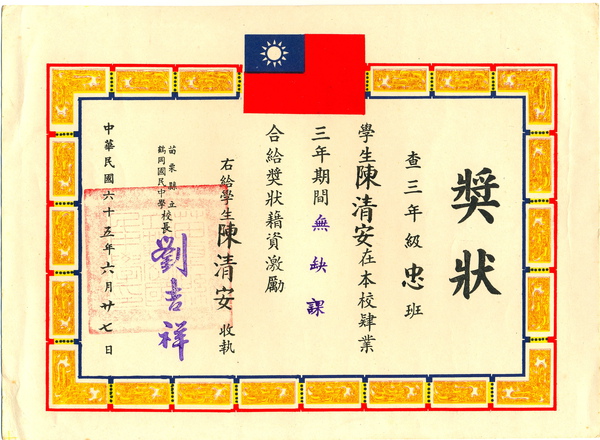 獎狀
查三年級忠班
學生陳清安在本校肄業
三年期間無缺課
合給獎狀藉資激勵
右給學生陳清安收執
苗栗縣立
鶴岡國民中學校長劉吉祥
中華民國六十五年六月廿七日